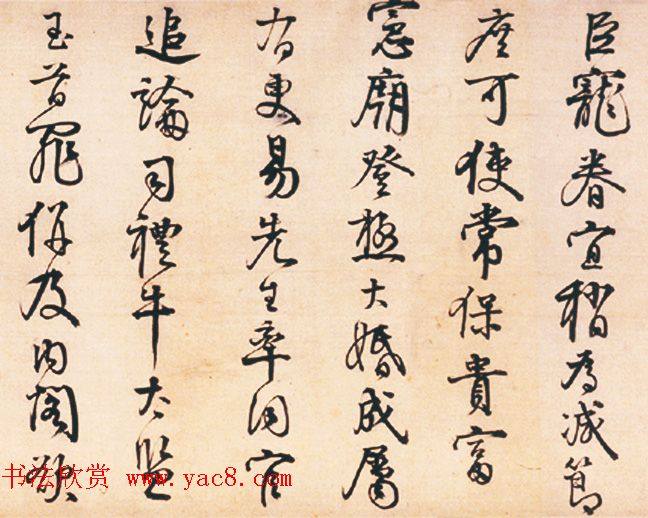 臣寵眷宜稍為減節
庶可使常保貴富
憲廟登極大婚成屬
有更易先生率同官
追論司禮牛太監
玉首罪併及內閣欲
书法欣赏 www.yac8.com